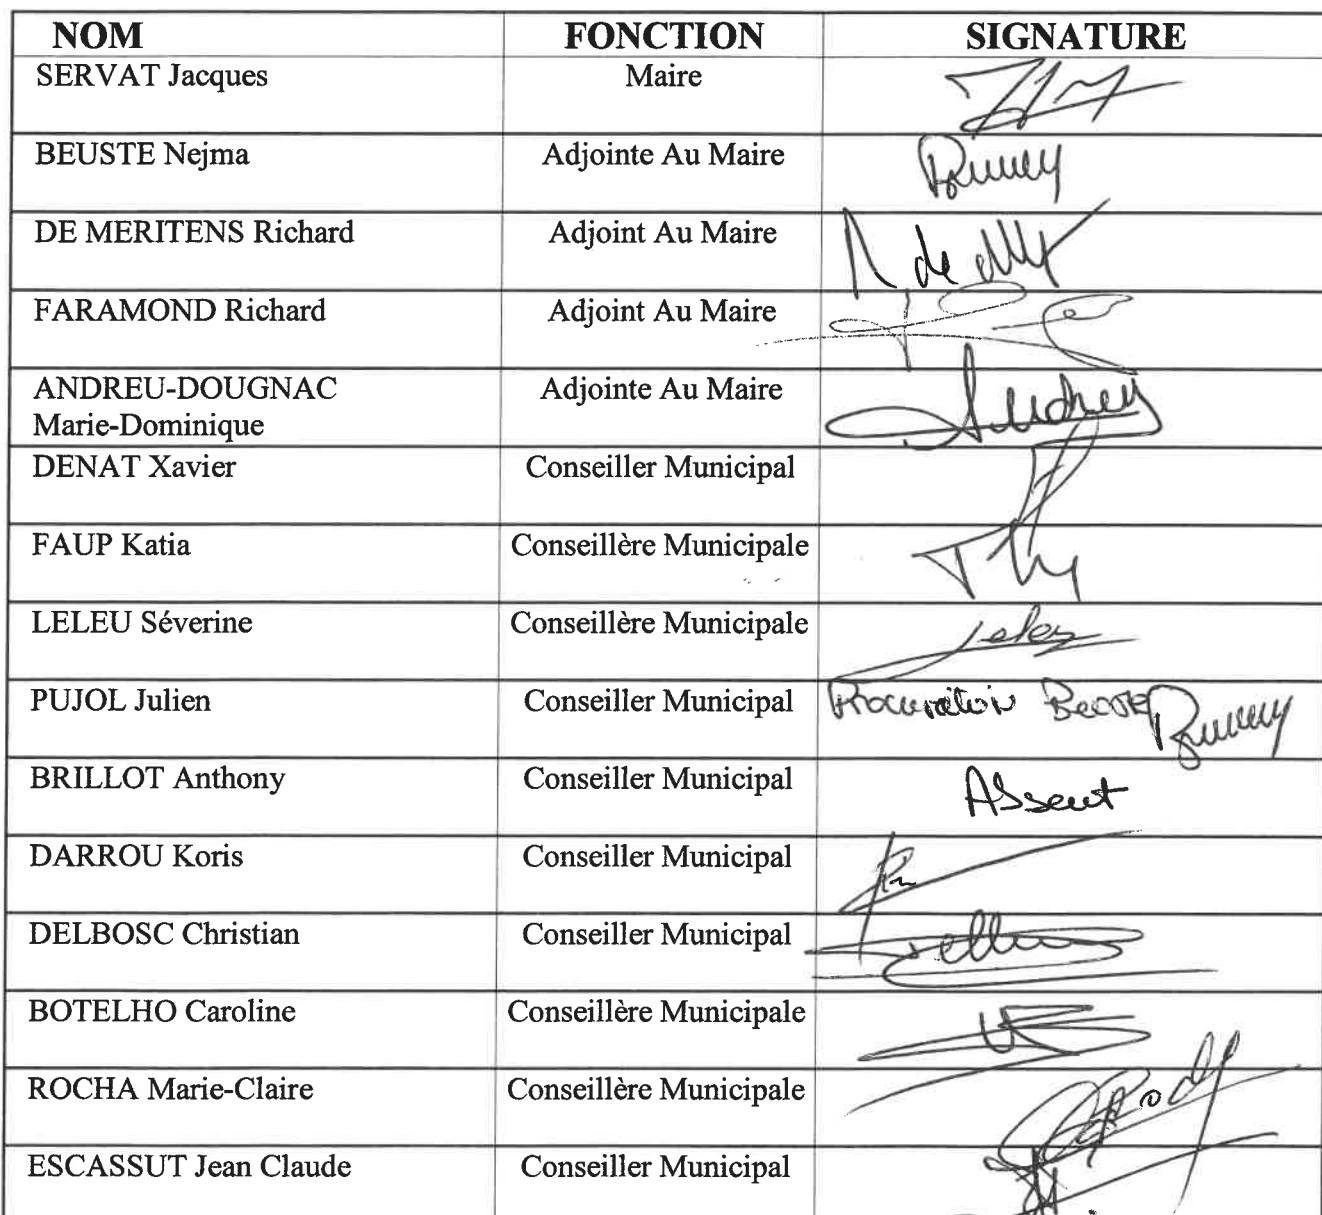 NOM FONCTION SIGNATURE
SERVAT Jacques Maire
BEUSTE Nejma Adjointe Au Maire
DE MERITENS Richard Adjoint Au Maire
FARAMOND Richard Adjoint Au Maire
ANDREU-DOUGNAC Adjointe Au Maire
Marie-Dominique
DENAT Xavier Conseiller Municipal
FAUP Katia Conseillère Municipale
LELEU Séverine Conseillère Municipale
PUJOL Julien Conseiller Municipal Procuration
BRILLOT Anthony Conseiller Municipal Absent
DARROU Koris Conseiller Municipal
DELBOSC Christian Conseiller Municipal
BOTELHO Caroline Conseillère Municipale
ROCHA Marie-Claire Conseillère Municipale
ESCASSUT Jean Claude Conseiller Municipal